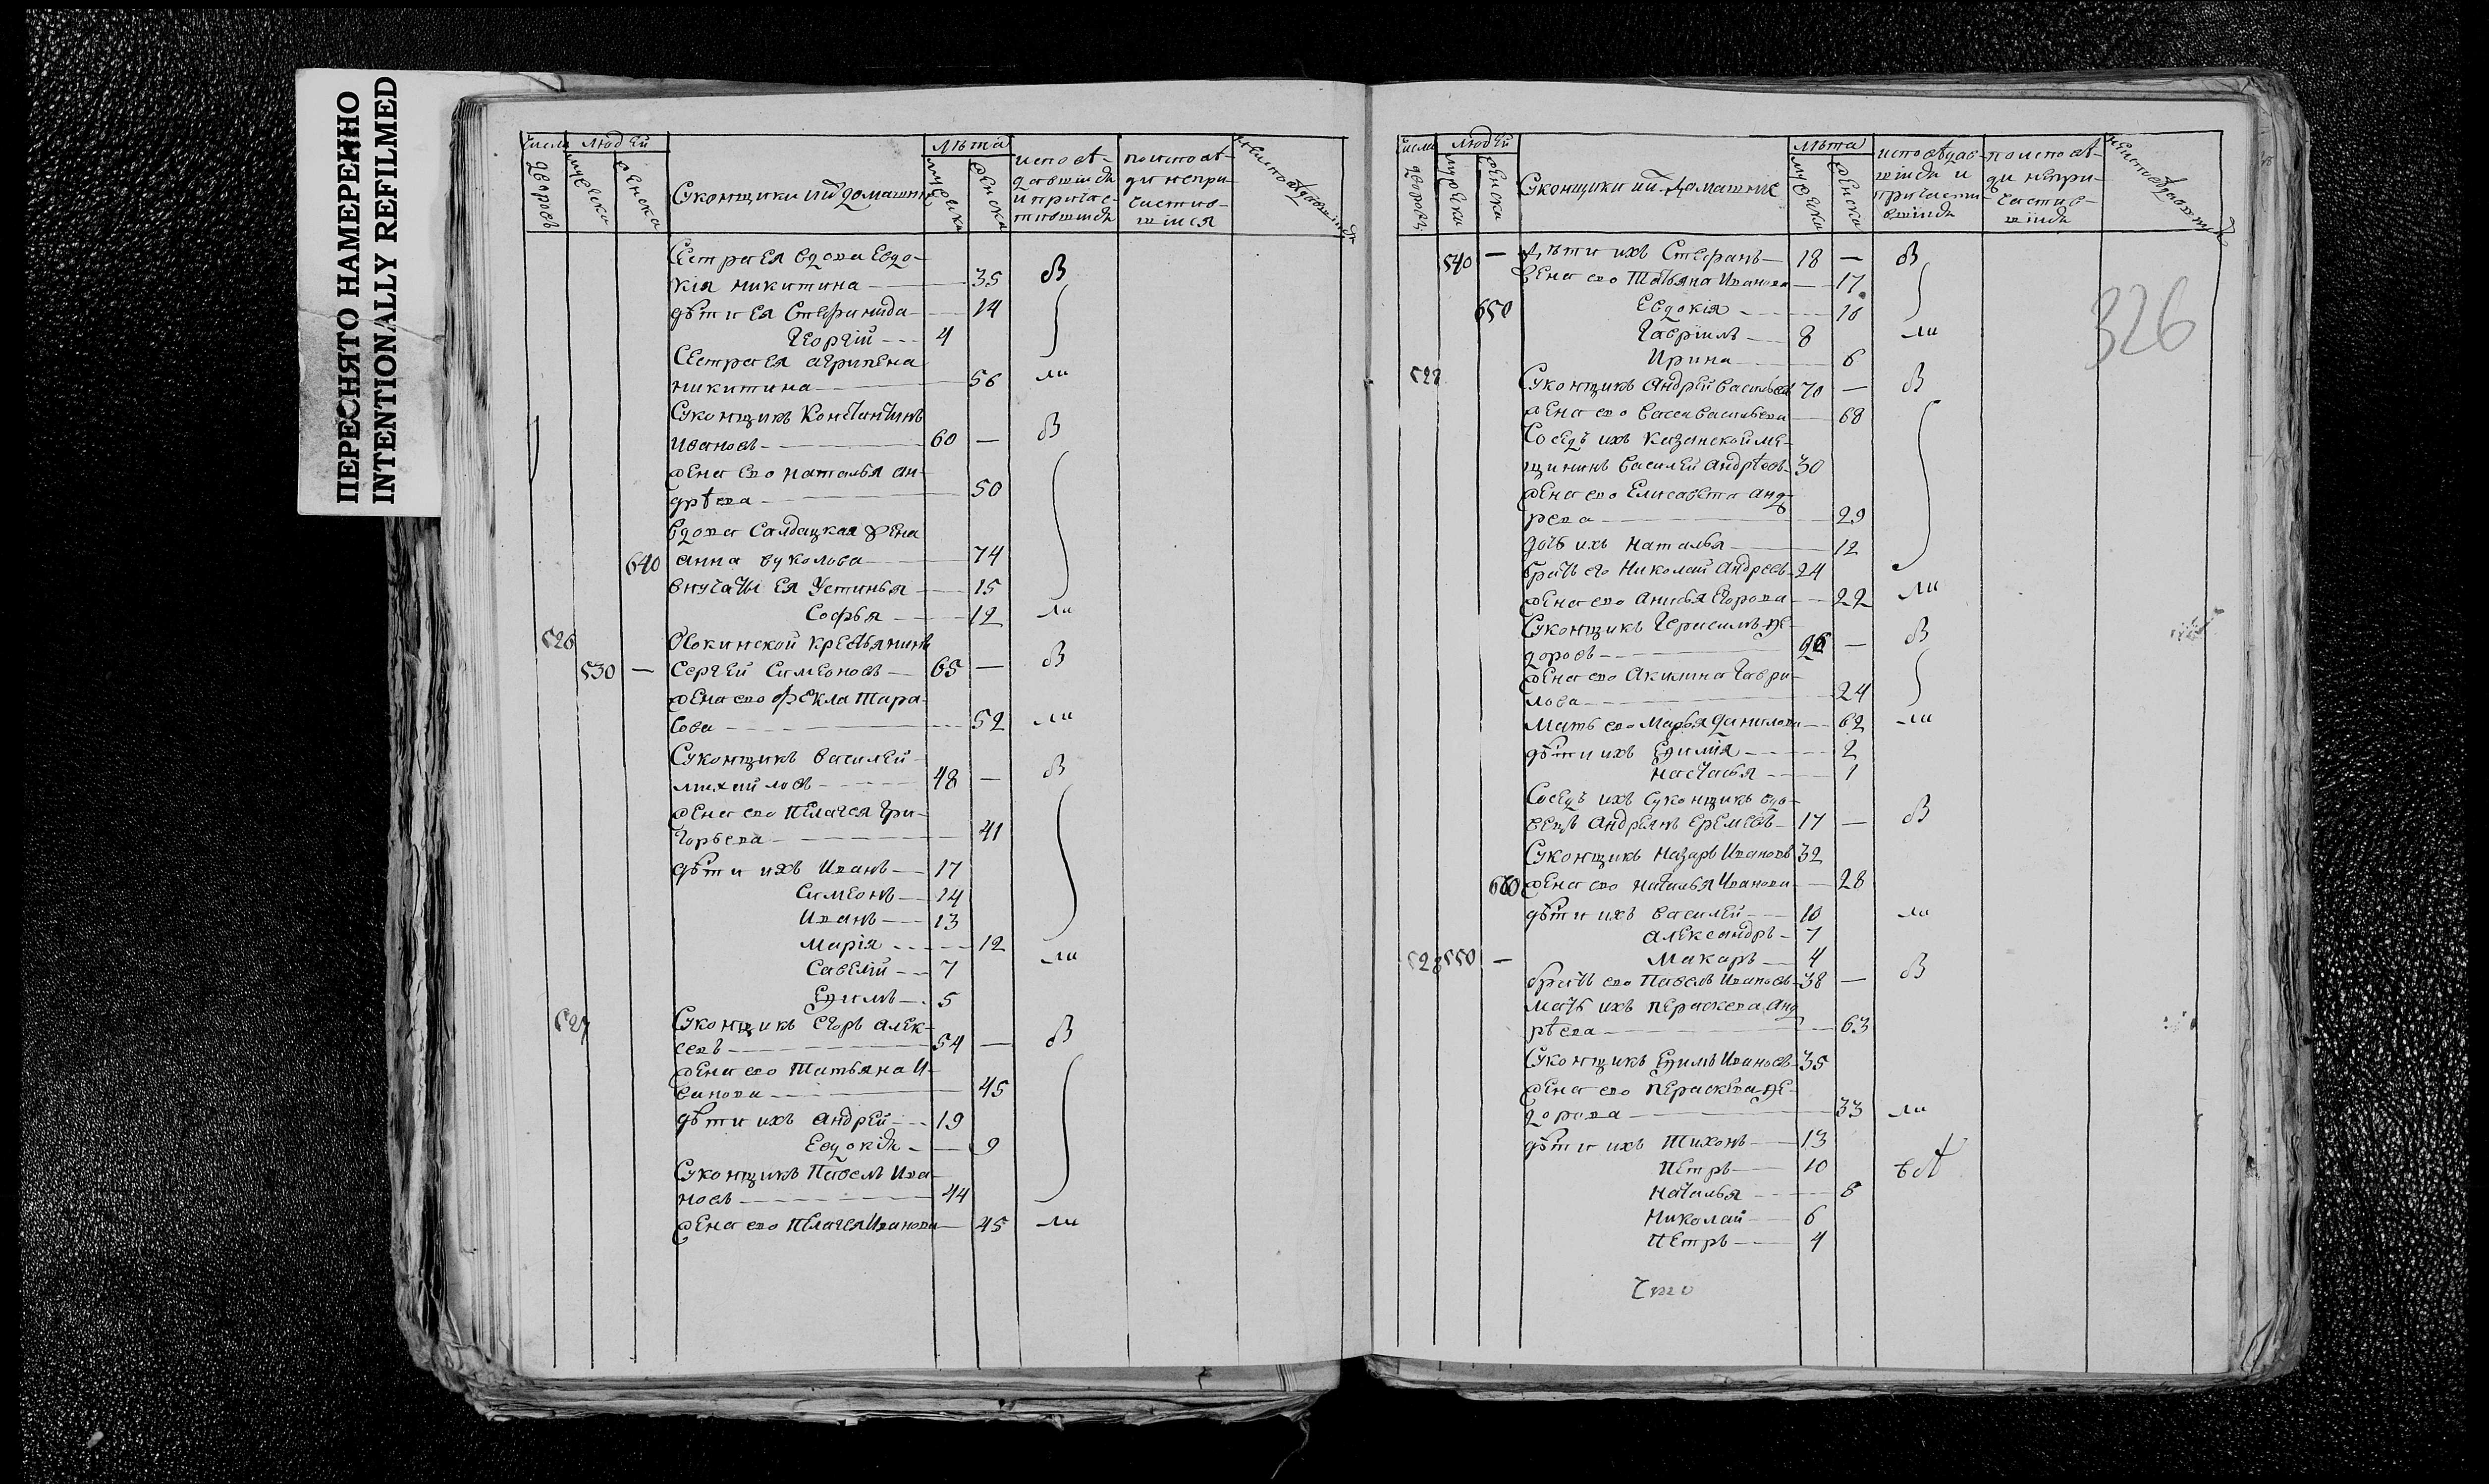 ПЕРЕСНЯТО НАМЕРЕННО
INTENTIONALLY REFILMED
число людей лѣта
дворовъ мужеска женска
Суконщики ихъ домашние
мужеска женска
исповѣ-
давшихся
и причас-
тившихся
поиспове-
ди непри-
частив-
шихся
неисповедавшихся
Сестра ея вдова Евдо-
кія никитина 35 В
дѣти ея Стефанида 14
Георгій 4
Сестра ея агрипена
никитина 56 ли
Суконщикъ Константинъ
ивановъ 60 — В
жена ево наталья ан-
дрѣева 50
вдова Салдацкая жена
640 анна вуколова 74
внучаты ея Устинья 15
Софья 12 ли
526 крестьянинъ
530 — Сергей Симеоновъ 65 — В
жена ево фекла Тара-
сова 52 ли
Суконщикъ василей
михайловъ 48 — В
жена ево Пелагея гри-
горьева 41
дѣти ихъ Иванъ 17
Симеонъ 14
Иванъ 13
Марія 12
Савелій 7 ли
Ефимъ 5
527 Суконщикъ Егоръ алек-
сеевъ 54 — В
жена ево Татьяна И-
ванова 45
дѣти ихъ андрей 19
Евдокія 9
Суконщикъ Павелъ Ива-
новъ 44
жена ево Пелагея Иванова 45 ли
число людей лѣта
дворовъ мужеска женска
Суконщики ихъ домашние
мужеска женска
исповѣдав-
шихся и
причасти-
вшихся
поисповѣ-
ди непри-
частив-
шихся
неисповедавшихся
540 — Дѣти ихъ Стефанъ 18 — В
жена ево Татьяна Иванова 17
650 Евдокія 10
Гавріилъ 8 ли
Ирина 6
528 Суконщикъ Андрей васильевъ 70 — В
жена ево васса васильева 68
Соседъ ихъ казанской ме-
щининъ василей андрѣевъ 30
жена ево Елисавета анд-
реева 29
дочь ихъ наталья 12
братъ его Николай андреевъ 24
жена ево анисья Егорова 22 ли
Суконщикъ Герасимъ Фе-
доровъ 26 — В
жена ево Акилина гаври-
лова 24
мать ево марья данилова 62 ли
дѣти ихъ Ефимія 2
настасья 1
Соседъ ихъ Суконщикъ вдо-
вецъ андреянъ Еремеевъ 17 — В
Суконщикъ назаръ Ивановъ 32
660 жена ево наталья Иванова 28
дѣти ихъ василей 10 ли
александръ 7
528 550 — Макаръ 4
братъ ево Павелъ Ивановъ 38 — В
мать ихъ Параскева анд-
рѣева 63
Суконщикъ Ефимъ Ивановъ 35
жена ево Параскева Фе-
дорова 33 ли
дѣти ихъ Тихонъ 13
Петръ 10
наталья 8
Николай 6
Петръ 4
326